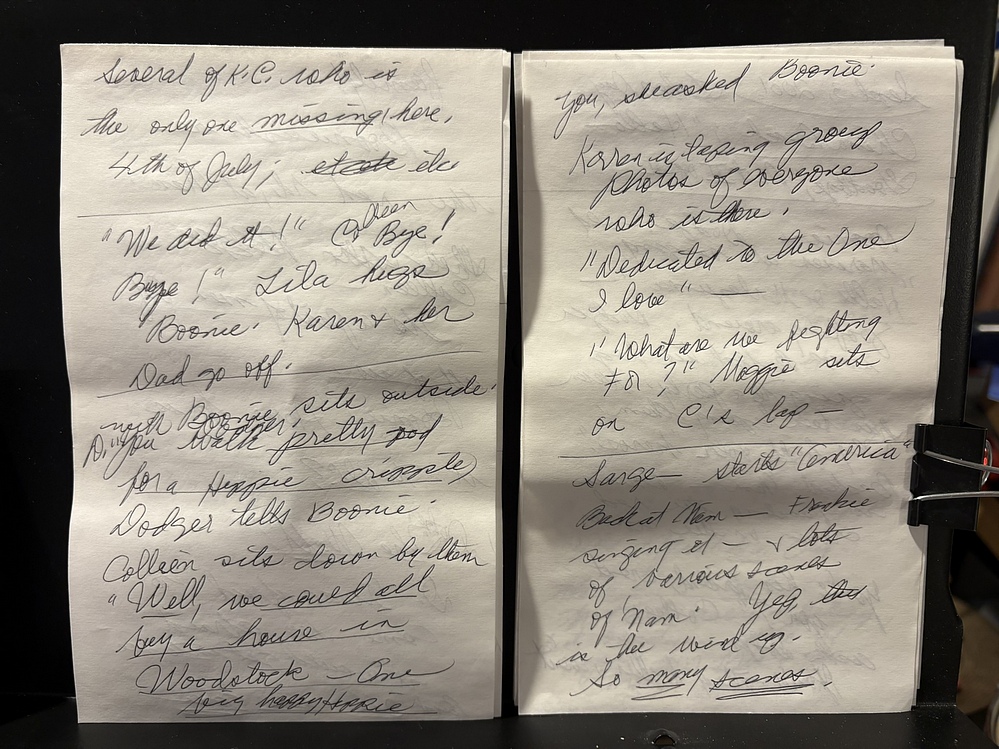 Several of K.C. who is
the only one missing, here,
4th of July; etc
"We did it!" Colleen Bye!
Bye!" Lila hugs
Boonie. Karen & her
Dad go off.
with Boonie, sits outside.
D. "You walk pretty
for a Hippie cripple,
Dodger tells Boonie.
Colleen sits down by them
"Well, we could all
buy a house in
Woodstock — One
big happy Hippie
you, she asked Boonie.
Karen is taping group
photos of everyone
who is there.
"Dedicated to the One
I love" —
"What are we fighting
for?" Maggie sits
on C's lap —
Sarge — starts "America"
Back at Nam — Frankie
singing it — & lots
of various scenes
of 'Nam. Yeg, this
is the wind up.
So many scenes.